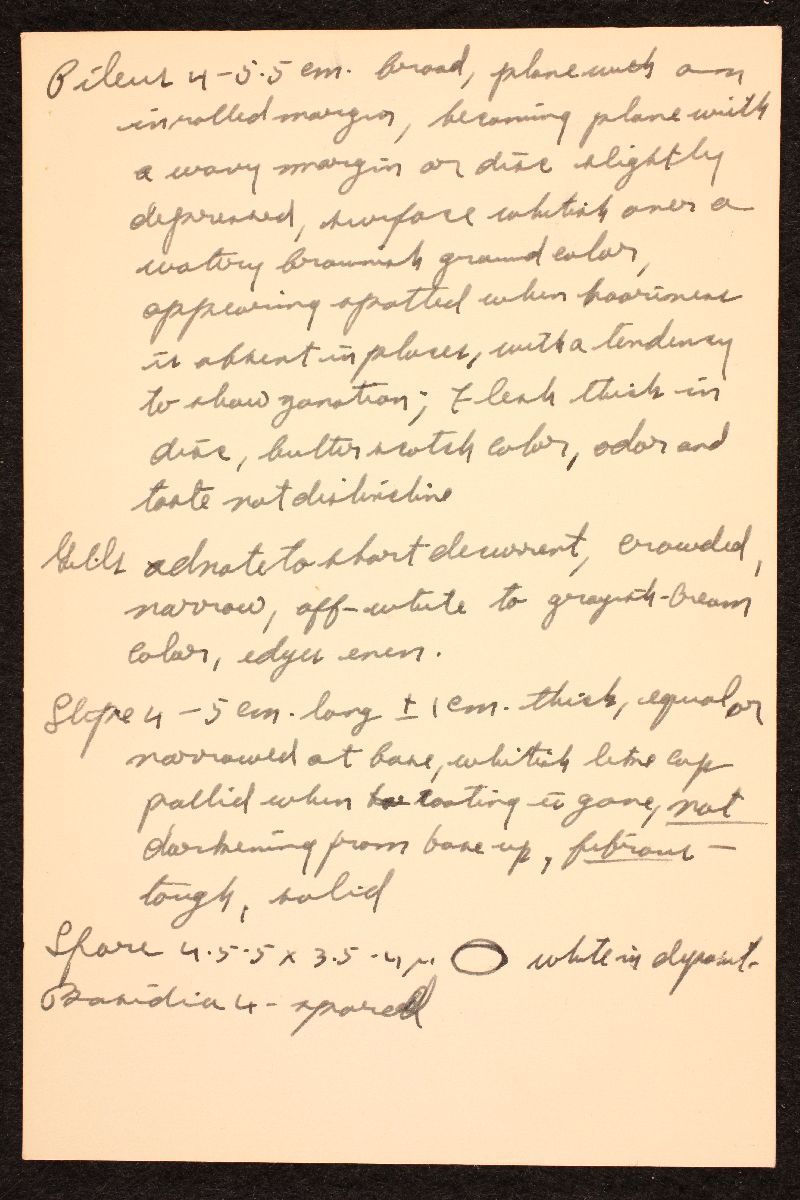 Pileus 4-5.5 cm. broad, plane with an
inrolled margin, becoming plane with
a wavy margin or disc slightly
depressed, surface whitish over a
watery brownish ground color,
appearing spotted when hoariness
is absent in places, with a tendency
to show zonation; Flesh thick in
disc, butterscotch color, odor and
taste not distinctive
Gills adnate to short decurrent, crowded,
narrow, off-white to grayish-cream
color, edges even.
Stipe 4-5 cm. long ± 1 cm. thick, equal or
narrowed at base, whitish like cap
pallid when coating is gone, not
darkening from base up, fibrous-
tough, solid
Spore 4.5-5 x 3.5-4 µ white in deposit.
Basidia 4-spored